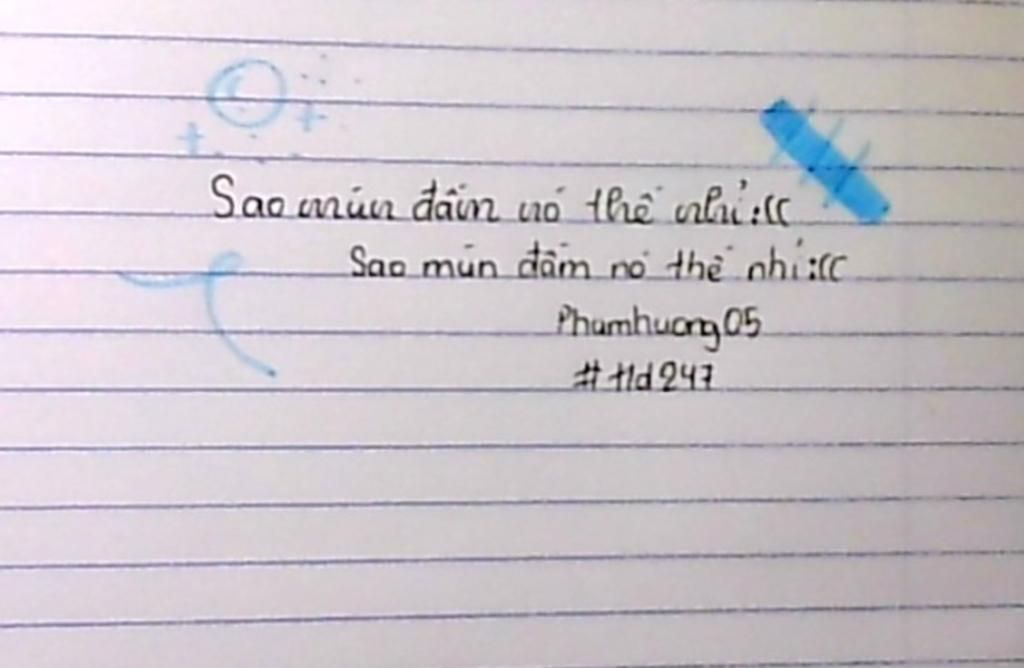 Sao mún đấm nó thế nhỉ:((
Sao mún đấm nó thế nhỉ:((
Phamhuong05
#tld247